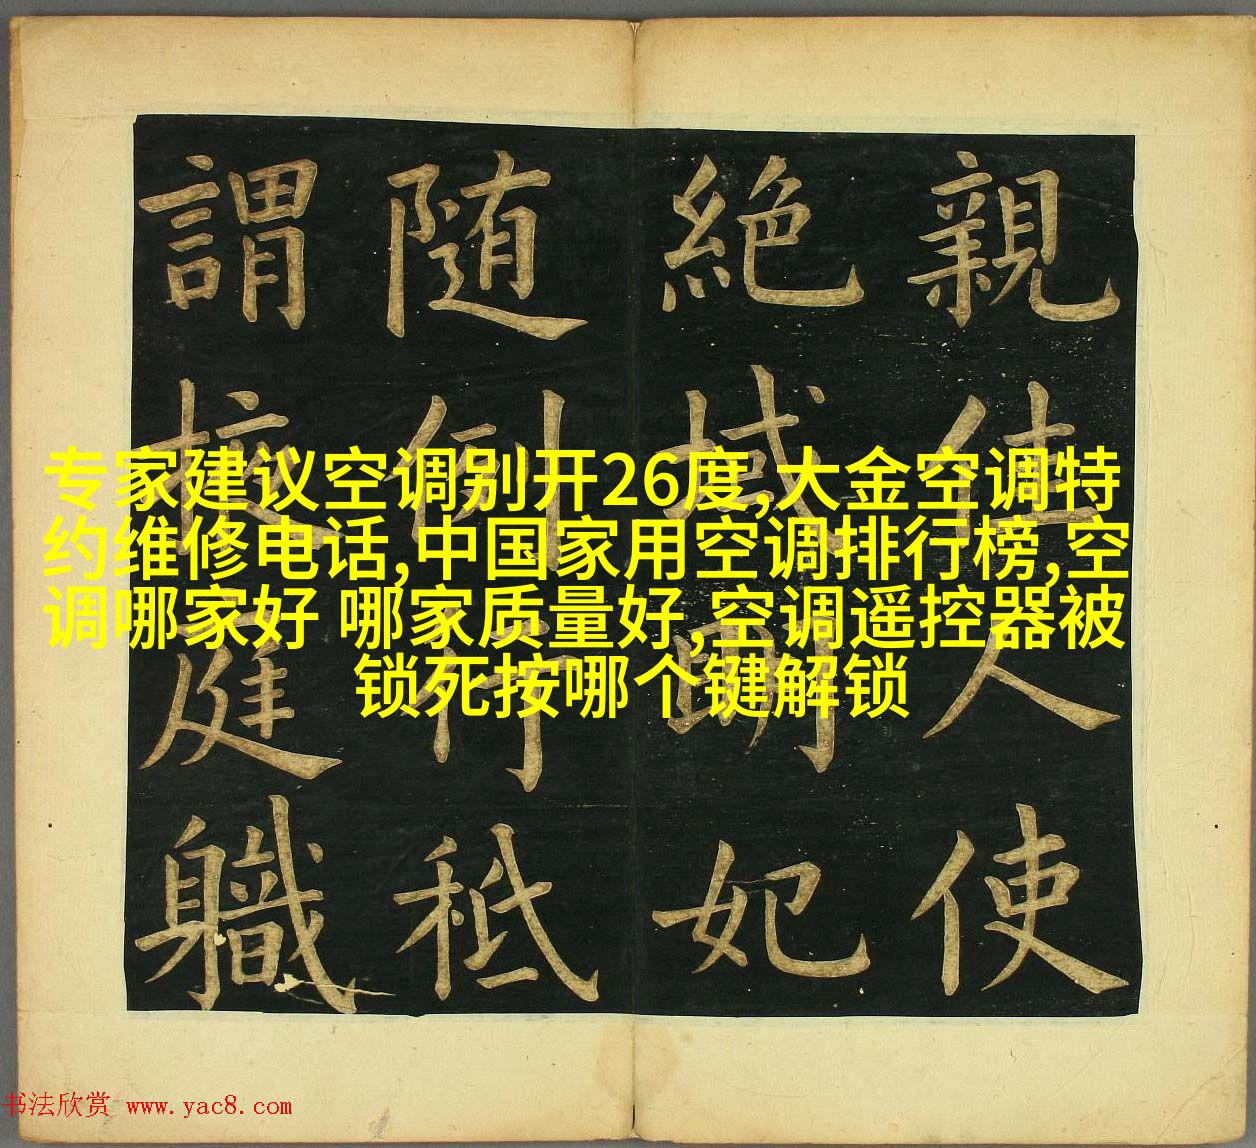 专家建议空调别开26度,大金空调特
约维修电话,中国家用空调排行榜,空
调哪家好 哪家质量好,空调遥控器被
锁死按哪个键解锁
親佳人使
絶域明妃
随例行秪
謂掖庭職
书法欣赏 www.yac8.com